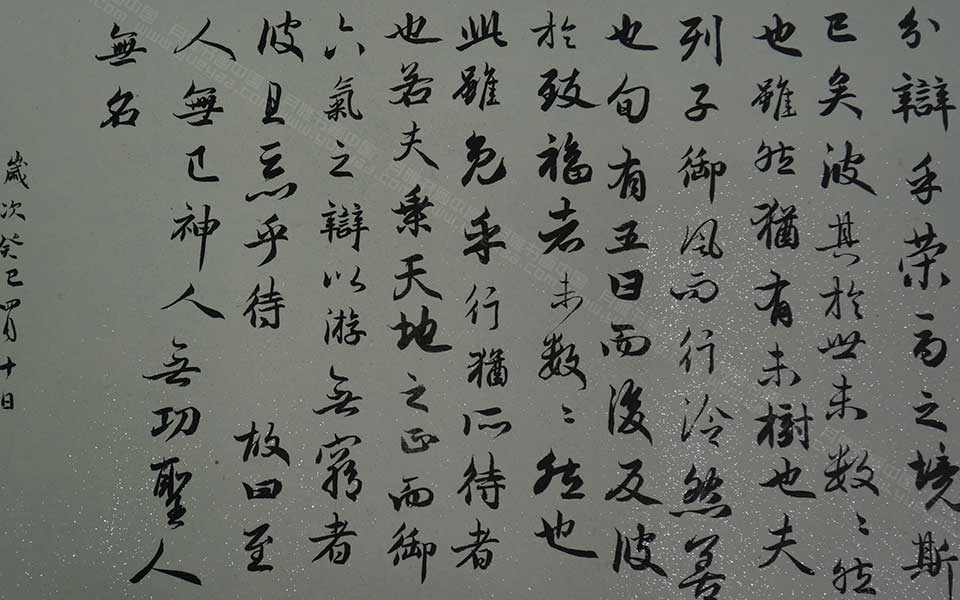 分辯乎荣辱之境斯
已矣彼其於世未数〻然
也雖然猶有未樹也夫
列子御风而行泠然善
也旬有五日而後反彼
於致福者未数〻然也
此雖免乎行猶所待者
也若夫乗天地之正而御
六氣之辯以游无窮者
彼且惡乎待 故曰至
人無已神人无功聖人
無名
歲次癸巳四月十日